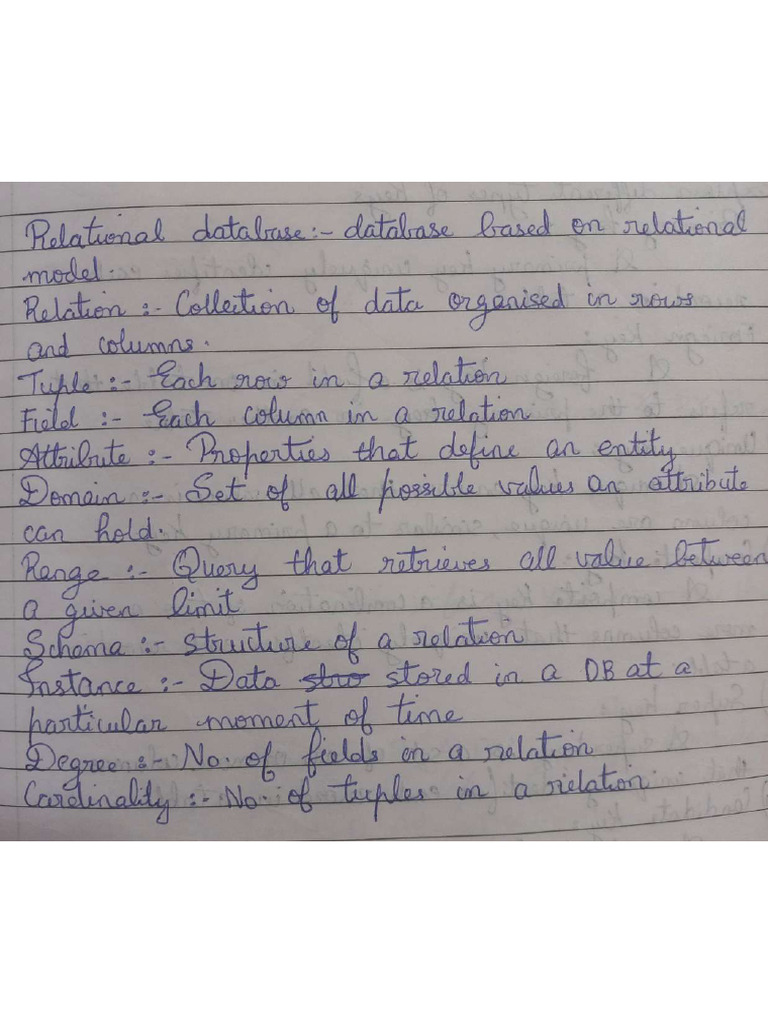 Relational database:- database based on relational
model.
Relation :- Collection of data organised in rows
and columns.
Tuple :- Each row in a relation
Field :- Each column in a relation
Attribute :- Properties that define an entity
Domain :- Set of all possible values an attribute
can hold.
Range :- Query that retrieves all value between
a given limit
Schema :- structure of a relation
Instance :- Data stored in a DB at a
particular moment of time
Degree :- No. of fields in a relation
Cardinality :- No. of tuples in a relation